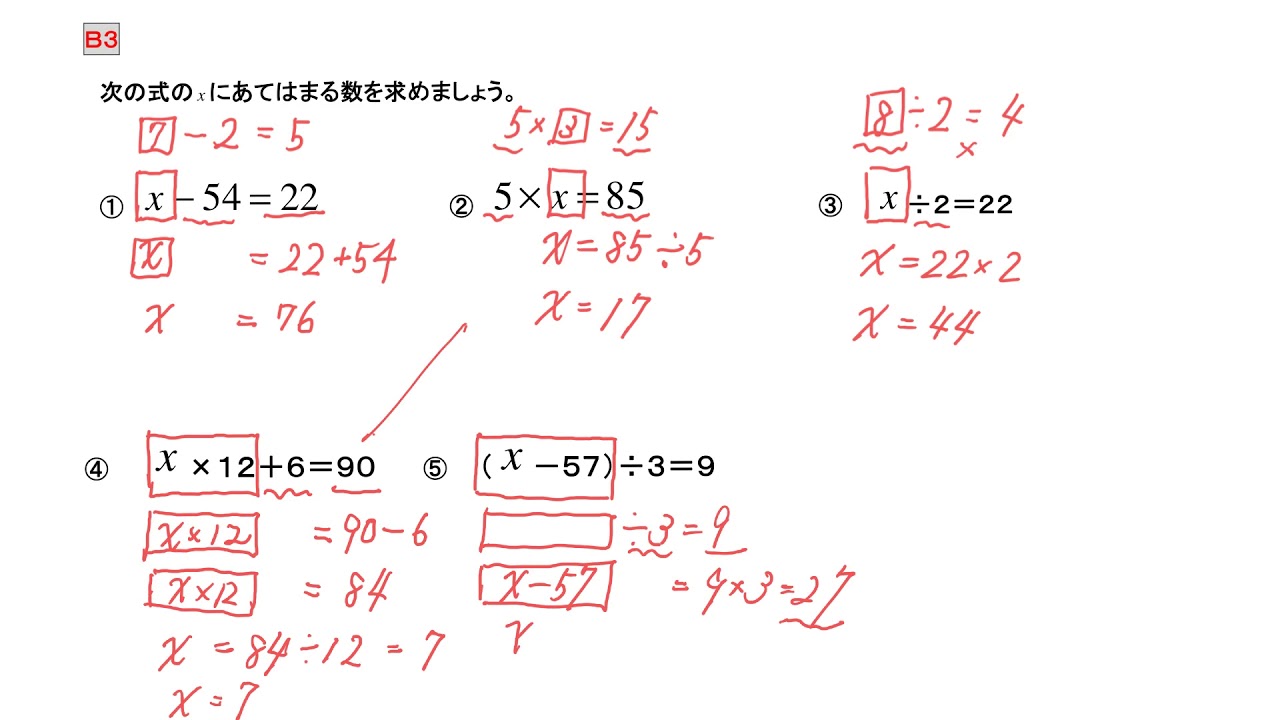 B3
次の式の x にあてはまる数を求めましょう。
7 - 2 = 5
① x - 54 = 22
x = 22 + 54
x = 76
5 × 3 = 15
② 5 × x = 85
x = 85 ÷ 5
x = 17
8 ÷ 2 = 4
×
③ x ÷ 2 = 22
x = 22 × 2
x = 44
④ x × 12 + 6 = 90
x × 12 = 90 - 6
x × 12 = 84
x = 84 ÷ 12 = 7
x = 7
⑤ (x - 57) ÷ 3 = 9
÷ 3 = 9
x - 57 = 9 × 3 = 27
x